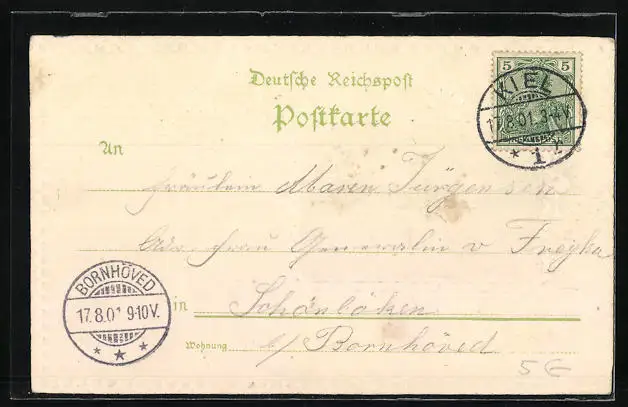 Deutsche Reichspost
Postkarte
5 5
KIEL
17.8.01. 3-4V.
* 1 z
An
Fräulein Maren Jürgensen
Adr. Frau Generalin v
BORNHÖVED
17.8.01 9-10V.
* * *
in Schönböken
Wohnung b/ Bornhöved
5€